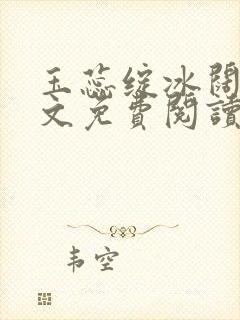 玉蕊绽冰阔
文免費閱讀
韦空